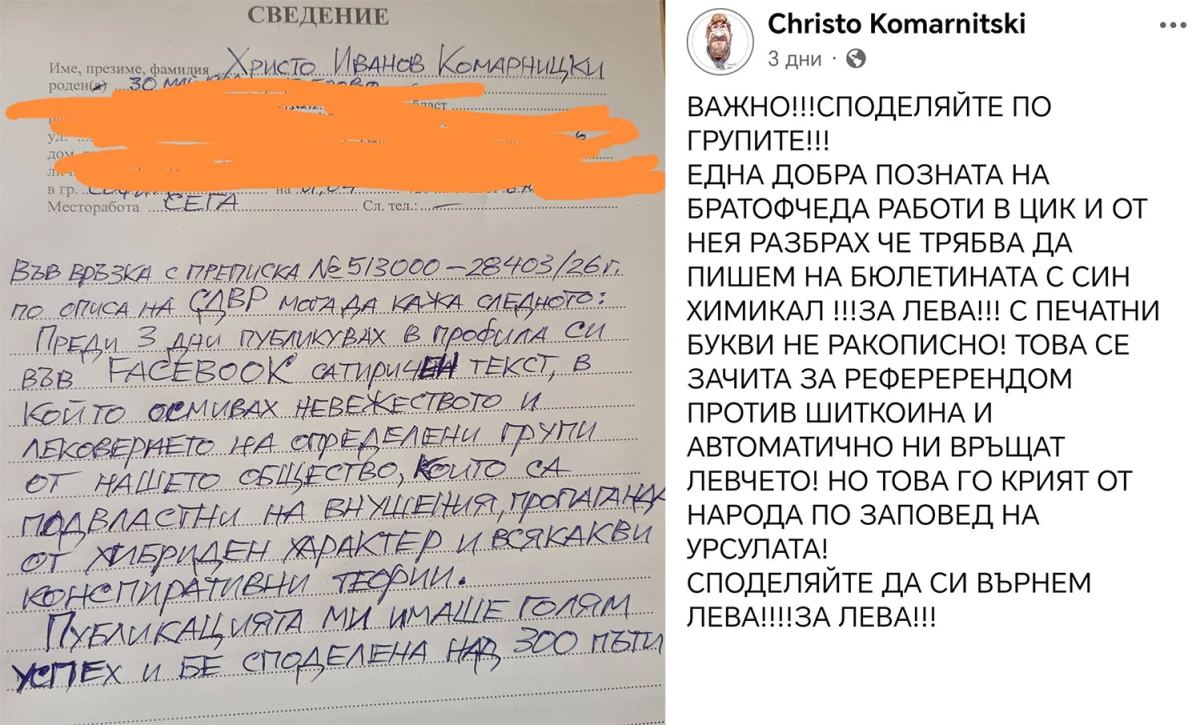 СВЕДЕНИЕ
Име, презиме, фамилия Христо Иванов Комарницки
роден(а) 30
област
ул.
дом.
в гр. София на 01.04
Месторабота СЕГА Сл. тел.: —
Във връзка с преписка №513000-28403/26г.
по описа на СДВР мога да кажа следното:
Преди 3 дни публикувах в профила си
във FACEBOOK сатиричен текст, в
който осмивах невежеството и
лековерието на определени групи
от нашето общество, които са
подвластни на внушения, пропаганда
от хибриден характер и всякакви
конспиративни теории.
Публикацията ми имаше голям
успех и бе споделена над 300 пъти
Christo Komarnitski
3 дни ·
ВАЖНО!!!СПОДЕЛЯЙТЕ ПО
ГРУПИТЕ!!!
ЕДНА ДОБРА ПОЗНАТА НА
БРАТОФЧЕДА РАБОТИ В ЦИК И ОТ
НЕЯ РАЗБРАХ ЧЕ ТРЯБВА ДА
ПИШЕМ НА БЮЛЕТИНАТА С СИН
ХИМИКАЛ !!!ЗА ЛЕВА!!! С ПЕЧАТНИ
БУКВИ НЕ РАКОПИСНО! ТОВА СЕ
ЗАЧИТА ЗА РЕФЕРЕРЕНДОМ
ПРОТИВ ШИТКОИНА И
АВТОМАТИЧНО НИ ВРЪЩАТ
ЛЕВЧЕТО! НО ТОВА ГО КРИЯТ ОТ
НАРОДА ПО ЗАПОВЕД НА
УРСУЛАТА!
СПОДЕЛЯЙТЕ ДА СИ ВЪРНЕМ
ЛЕВА!!!!ЗА ЛЕВА!!!